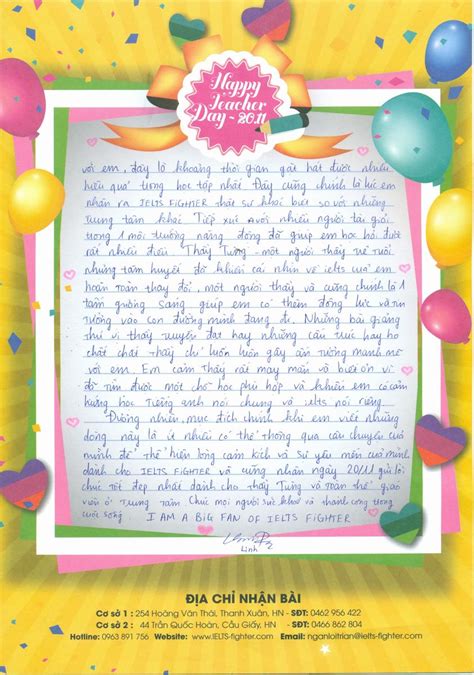 Happy
Teacher
Day - 20.11
với em, đây là khoảng thời gian gặt hát được nhiều
hiệu quả trong học tập nhất. Đây cũng chính là lúc em
nhận ra IELTS FIGHTER thật sự khác biệt so với những
trung tâm khác. Tiếp xúc với nhiều người tài giỏi
trong 1 môi trường năng động đã giúp em học hỏi được
rất nhiều điều. Thầy Tùng - một người thầy trẻ tuổi
nhưng tâm huyết đã khiến cái nhìn về ielts của em
hoàn toàn thay đổi, một người thầy và cũng chính là 1
tấm gương sáng giúp em có thêm động lực và tin
tưởng vào con đường mình đang đi. Những bài giảng
thú vị thầy truyền đạt hay những cấu trúc hay ho
chất chơi thầy chỉ luôn luôn gây ấn tượng mạnh mẽ
với em. Em cảm thấy rất may mắn và biết ơn vì
đã tìm được một chỗ học phù hợp và khiến em có cảm
hứng học Tiếng anh nói chung và ielts nói riêng.
Đương nhiên, mục đích chính khi em viết những
dòng này là ít nhiều có thể thông qua câu chuyện của
mình để thể hiện lòng cảm kích và sự yêu mến của mình
dành cho IELTS FIGHTER và cũng nhân ngày 20/11 gửi lời
chúc tốt đẹp nhất dành cho thầy Tùng và toàn thể giáo
viên ở trung tâm. Chúc mọi người sức khoẻ và thành công trong
cuộc sống. I AM A BIG FAN OF IELTS FIGHTER
Linh
ĐỊA CHỈ NHẬN BÀI
Cơ sở 1 : 254 Hoàng Văn Thái, Thanh Xuân, HN - SĐT: 0462 956 422
Cơ sở 2 : 44 Trần Quốc Hoàn, Cầu Giấy, HN - SĐT: 0466 862 804
Hotline: 0963 891 756 Website: www.IELTS-fighter.com Email: nganloitrian@ielts-fighter.com